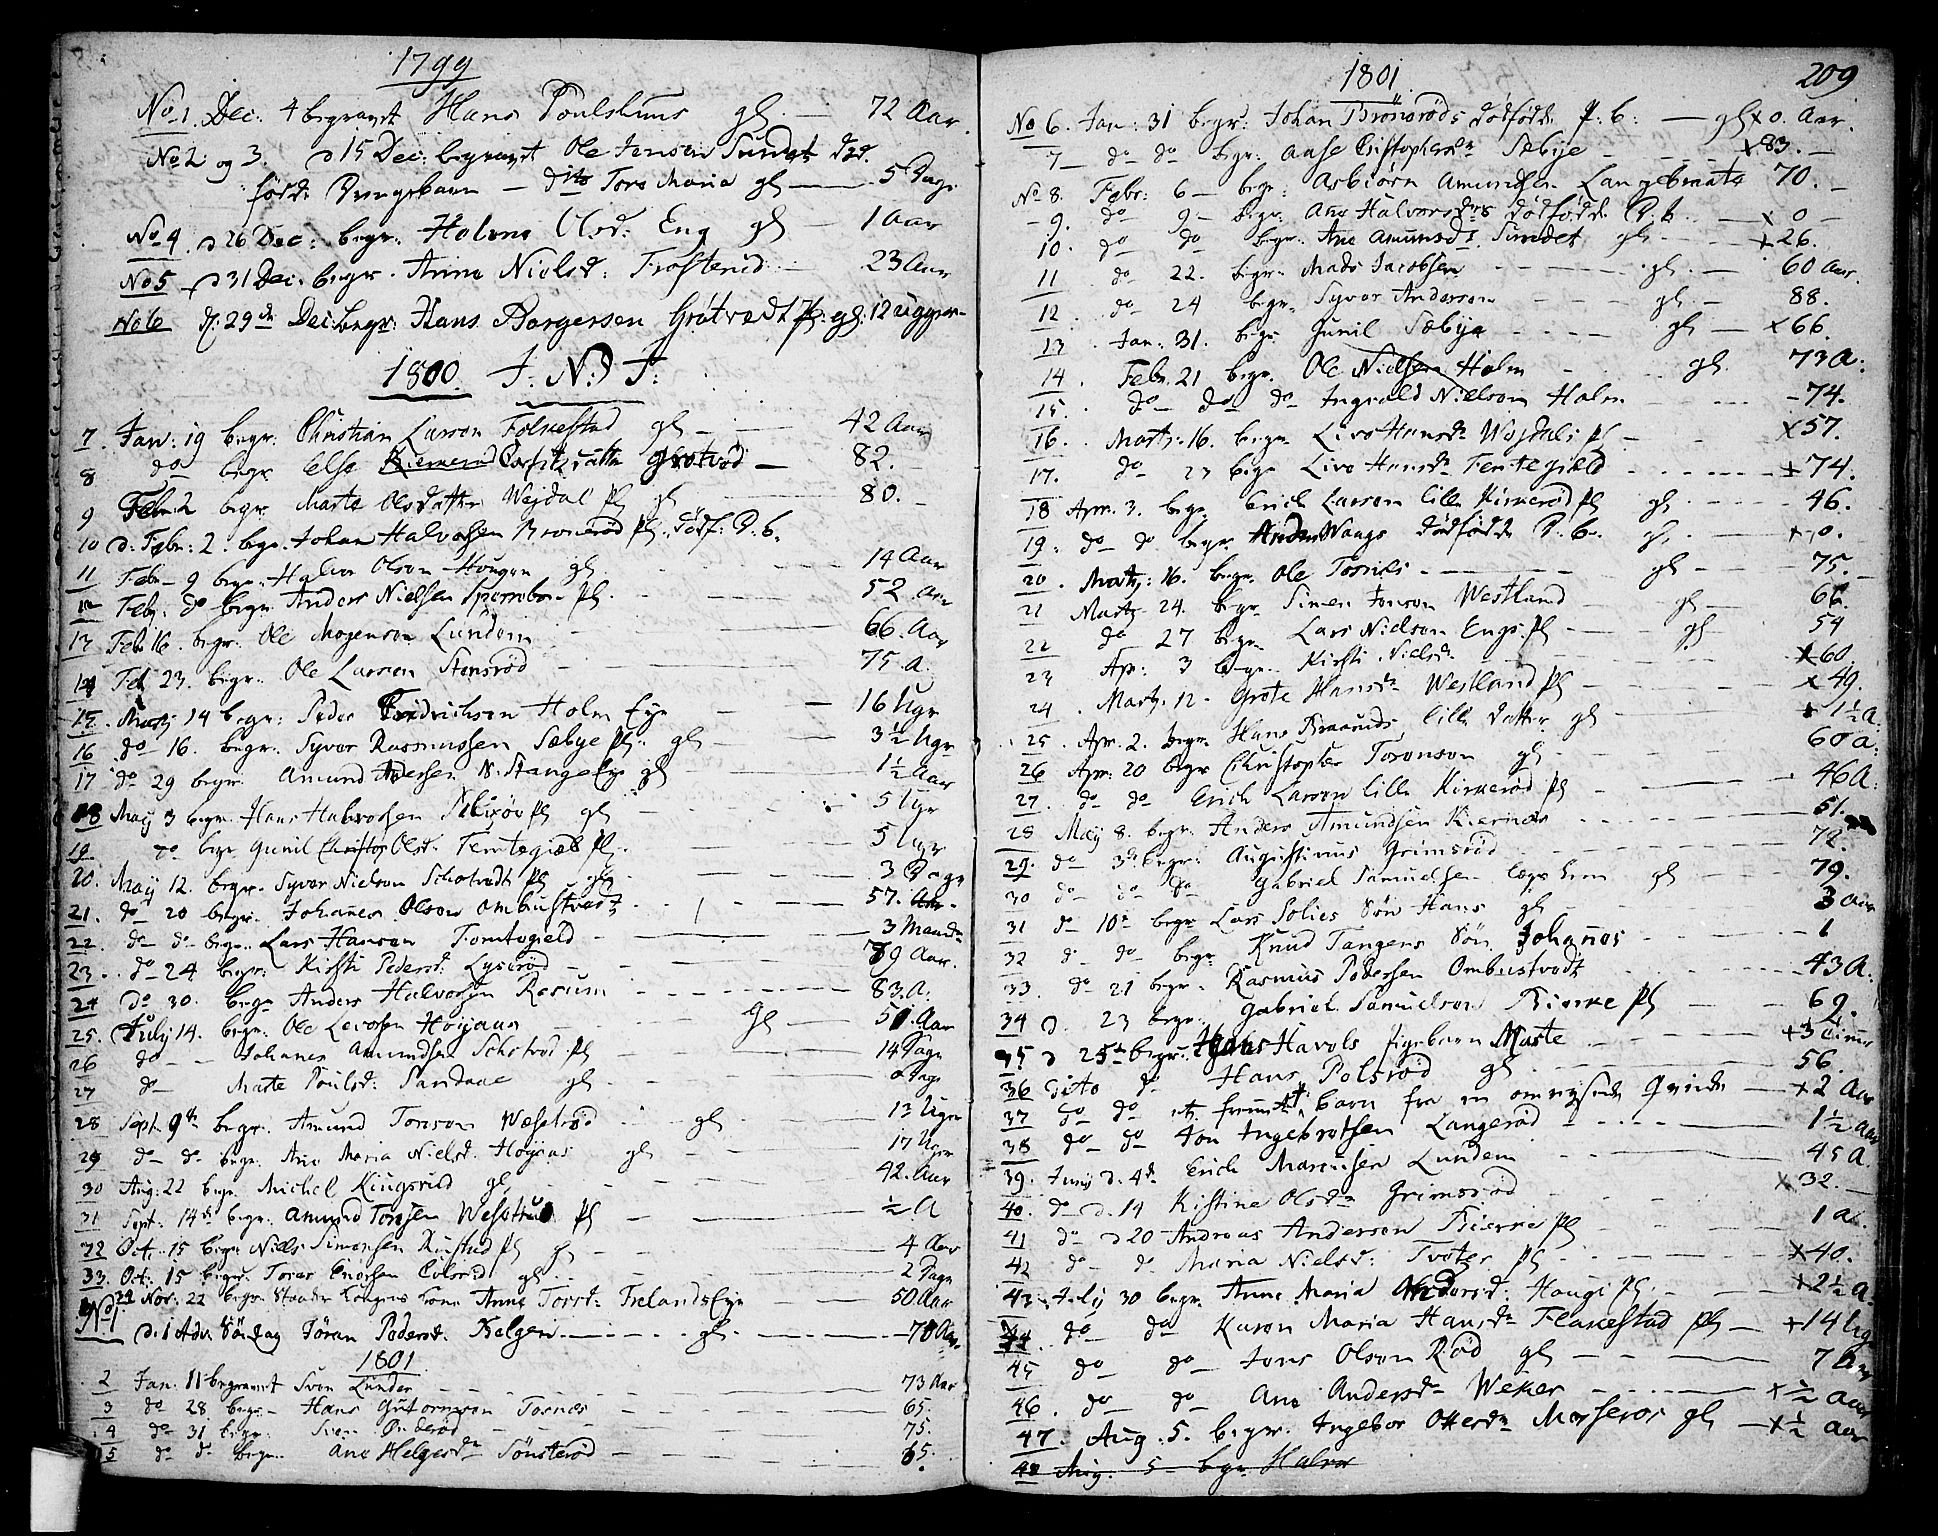 1799
No 1. Dec: 4 begravet Hans Poulshuus gl. — 72 Aar.
No 2 og 3. d 15 Dec: begravet Ole Jensen Sundets
fødde — dito Tore Maria gl — 5 Dage
No 4. d 26 Dec: begr. Helene Olsd: Eng gl — 1 Aar
No 5 d 31 Dec. begr. Anne Nielsd: Frosterød — 23 Aar
No 6 d: 29de Dec: begr: Hans Borgersen Grötvedt Pl: gl: 12 Uger
1800 J: N: J:
7. Jan: 19 begr: Christian Larsen Folkestad gl — 42 Aar
8 do begr Else Grötvöd — 82.
9 Febr 2 begr Marte Olsdatter Wejdal Pl gl — 80.
10 d: Febr: 2. begr. Johan Halvorsen Bronerød Pl: Dödf: P: b.
11 Febr — 9 begr: Halvor Olsen Hougen gl. — 14 Aar
12 Febr. do begr Anders Nielsen Pl. — 52. Aar
13 Feb: 16. begr. Ole Mogensen Lundeim — 66. Aar
14 Feb 23. begr. Ole Larsen Stensröd — 75. A.
15. Martz 14 begr: Peder Fredrichsen Holm Eje — 16 Uger
16 do 16. begr. Syver Rasmussen Sæbye Pl. gl — 3½ Uger
17 do 29 begr. Amund Stange Eje gl — 1½ Aar
18 Maij 3 begr. Hans Halvorsen Pl gl — 5 Uger
19 do begr Gunil Olsd. Femtegield Pl. — 5 Uger
20. Maij 12. begr. Syver Nielsen Schotvedt Pl gl — 3 Dage
21. do 20 begr. Johannes Olsen Ombustvedt — 57. Aar.
22. do do begr. Lars Hansen Femtegield — 3 Maand
23. do 24 begr: Kirsti Pedersd: Lyserød — 79 Aar.
24 do 30. begr Anders Halvorsen Røsum — 83. A.
25. July 14. begr. Ole Gl — 51. Aar
26 do — Johanes Amundsen Pl — 14 Dage
27 do Marte Poulsd: Sandaae gl — Dage
28 Sept. 9de begr: Amund Torsen Wæsetröd gl — 13 Uger
29 do do begr. Ane Maria Nielsd. Høyaas gl — 17 Uger
30 Aug: 22 begr. Michel Kingsrud gl — 42. Aar
31 Sept: 14de begr: Amund Torsen Pl — ½ A
32 Oct: 15 begr Niels Simonsen Pl gl — 4 Aar
33. Oct: 15 begr. gl — 2 Dage
Nov: 22 begr. Kone Anne Torsd: Frelands Eje — 50 Aar
No 1 d. 1 Adv. Söndag Jöran Pedersd. Belgen — gl — 78 Aar
1801
2 Jan. 11 begravet Sven Lunder — 73 Aar
3 do 28. begr. Hans Gutormsen Tosnæs — 65.
4 do 31 begr. — 75.
5 do do begr. Ane Helgesdr Sönsteröd — 65.
1801 209
No 6. Jan: 31 begr: Johan Brönöröds dödfödde P: b: — gl x 0. Aar.
7 — do do begr: Aase Cristophersdr Sæbye — x 83. —
No 8. Febr: 6 — begr: Asbiörn Amundsen Langebraate 70. —
9. do 9 — begr. Ane Halvorsdrs dödfödde P. b. — x 0 —
10. do do begr. Ane Amunsdr. Sundet gl. — x 26.
11 do 22. begr. Mads Jacobsen — gl. — 60 Aar.
12 do 24 begr. Syver Andersen — gl — 88.
13 Jan: 31. begr Gunil Sæbye — gl — x 66.
14. Febr. 21 begr. Ole Nielsen Holm — gl. 73 A:
15. do — do do Ingvald Nielsen Holm — 74.
16. Martz: 16. begr Live Hansdr Wejdals Pl — x 57.
17. do 23 begr Live Hansdr Femtegield — x 74.
18 Apr. 3. begr Erich Larsen lille Kirkerød Pl gl. — 46.
19. do do begr Waags dödfödde P. b. gl. — x 0.
20. Martz: 16. begr. Ole Tosnæs — gl — 75.
21 Martz 24. begr. Simen Jonsen Westland — gl — 66.
22 do 27 begr. Lars Nielsen Engs Pl — gl — 54
23 Apr: 3 begr. Kirsti Nielsdr — x 60.
24. Martz. 12 — Grete Hansdr Westland Pl — x 49.
25. Apr. 2. begr. Hans Braaruds lille datter gl — x 1½ A.
26 Apr: 20 begr Christopher Torensen gl — 60 A:
27. do do Erich Larsen lille Kirkerød Pl — 46 A:
28 Maij 8. begr. Anders Amundsen Kiernæs — 61.
29. do 3de begr: Augustinus Grimsröd — 72.
30 do do do Gabriel Samuelsen gl — 79.
31 do 10de begr Lars Solies Sön Hans gl — 3 Aar
32 do do begr. Knud Tangens Sön Johanes — 1
33. do 21 begr. Rasmus Pedersen Ombustvedt — 43 A.
34 d. 23 begr. Gabriel Samuelsen Bierke Pl — 69.
35 d 25de begr. Havols pigebarn Marte — x 3 Timer
36 Dito do Hans Polsröd gl — 56.
37 do do et fremmet barn fra en omrejsende Qvinde — x 2 Aar
38 do do Jon Ingebretsen Langerød — 1½ Aar
39. Junij d. 4de Erich Marcusen Lundem — 45 A.
40. do d. 14 Kistine Olsdr Grimsröd — x 32. —
41 do d 20 Andreas Andersen Bierke Pl — 1 A.
42 do do Maria Nielsd: Tveter Pl — x 40.
43. July 30 begr. Anne Maria Andersd. Hauge Pl — x 2½ A.
44. do do Karen Maria Hansdr Flakestad Pl — x 14 Ug
45 do do Jens Olsen Röd gl — 7 Aar
46. do do Ane Andersdr Weker — x ½ Aar
47. Aug. 5. begr. Ingebor Ottersdr Morserød gl — x ½ Aar
48 Aug: 5 — begr Halvor